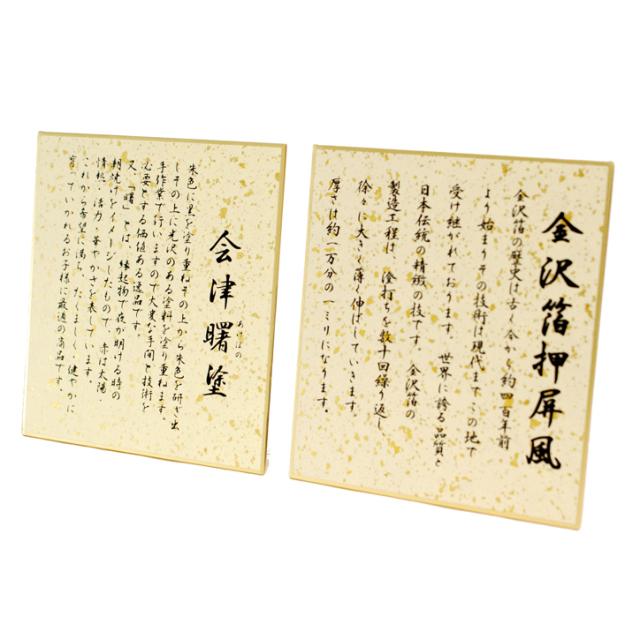 会津曙塗
あけぼの
朱色に黒を塗り重ねその上から朱色を研ぎ出
しその上に光沢のある塗料を塗り重ねます。
手作業で行いますので大変な手間と技術を
必要とする価値ある逸品です。
又、「曙」とは、縁起物で夜が明ける時の
朝焼けをイメージしたもので、赤は太陽
情熱、活力・華やかさを表しています。
これから希望に満ち、たくましく、健やかに
育っていかれるお子様に最適の商品です。
金沢箔押屏風
金沢箔の歴史は古く今から約四百年前
より始まりその技術は現代までこの地で
受け継がれております。世界に誇る品質と
日本伝統の精緻の技です。金沢箔の
製造工程は、金打ちを数十回繰り返し、
徐々に大きく薄く伸ばしていきます。
厚さは約一万分の一ミリになります。